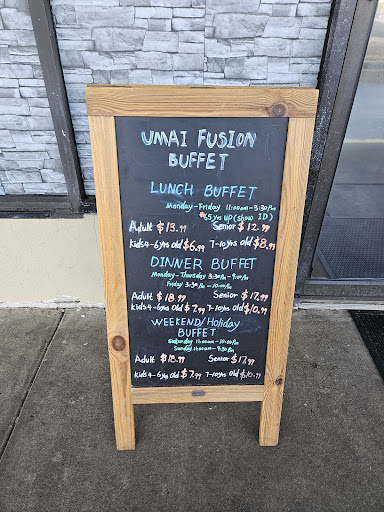 UMAI FUSION
BUFFET
LUNCH BUFFET
Monday-Friday 11:00am-3:30Pm
65yrs UP (show ID)
Adult $13.99 Senior $12.99
Kids 4-6yrs Old $6.99 7-10yrs Old $8.99
DINNER BUFFET
Monday-Thursday 3:30Pm-9:00Pm
Friday 3:30Pm-10:00Pm
Adult $18.99 Senior $17.99
Kids 4-6yrs Old $7.99 7-10yrs Old $10.99
WEEKEND/Holiday
BUFFET
Saturday 11:00am-10:00Pm
Sunday 11:00am-9:30Pm
Adult $18.99 Senior $17.99
Kids 4-6yrs Old $7.99 7-10yrs Old $10.99